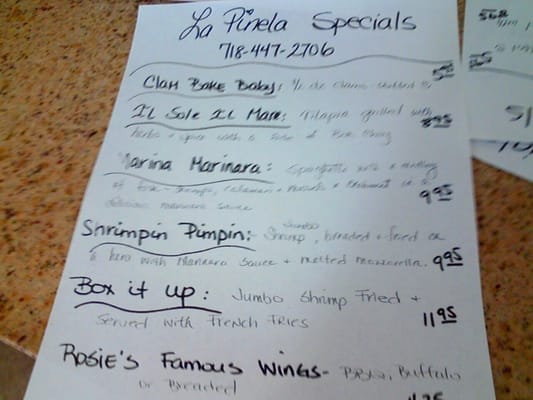 La Pinela Specials
718-447-2706
Clam Bake Baby: 1/2 doz Clams stuffed
Il Sole Il Mare: Tilapia grilled with
herbs + spice with a side of 8.95
Marina Marinara: Spaghetti with a medley
of fish - shrimp, calamari + mussels + in a
delicious marinara sauce 9.95
Shrimpin Pimpin: Jumbo Shrimp, breaded + fried on
a hero with Marinara Sauce + melted mozzarella. 9.95
Box it up: Jumbo Shrimp Fried +
Served with French Fries 11.95
Rosie's Famous Wings - BBQ, Buffalo
or Breaded